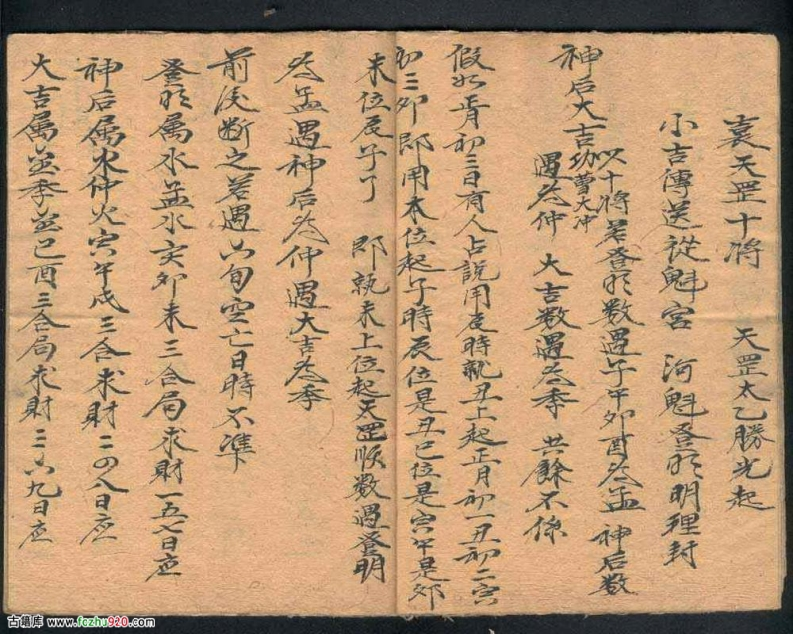 袁天罡十將　天罡太乙勝光起
小吉傳送從魁宮　河魁登明明理封
以十將若登明數遇子午卯酉為孟　神后數
神后大吉功曹大冲
遇為仲　大吉數遇為季　其餘不係
假如正月初三日有人占說用辰時就丑上起正月初一丑初二寅
初三卯即用本位起子時辰位是丑巳位是寅午是卯
未位辰字了　即就未上位起天罡順數遇登明
為孟遇神后為仲遇大吉為季
前後斷之若遇六旬空亡日時不準
登明屬水孟水亥卯未三合局求財一五七日应
神后屬水仲火寅午戌三合求財二四八日应
大吉属金季金巳酉三合局求財三六九日应
古籍库 www.fczhu920.com